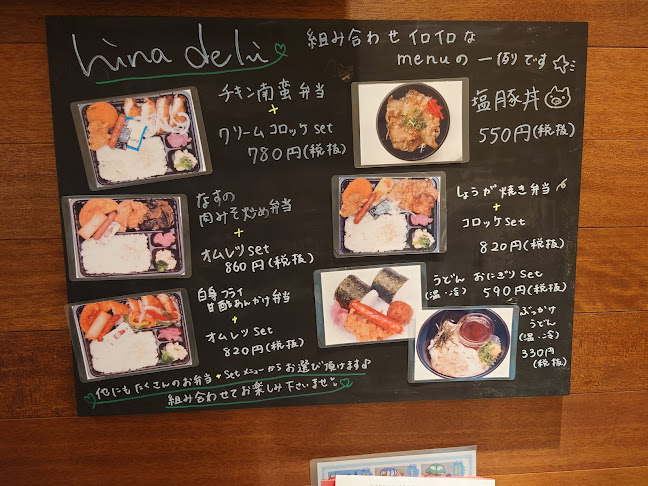 hina deli
組み合わせイロイロな
menuの一例です☆
チキン南蛮弁当
+
クリームコロッケset
780円(税抜)
塩豚丼
550円(税抜)
なすの
肉みそ炒め弁当
+
オムレツset
860円(税抜)
しょうが焼き弁当
+
コロッケset
820円(税抜)
白身フライ
甘酢あんかけ弁当
+
オムレツset
820円(税抜)
うどん おにぎりset
(温・冷) 590円(税抜)
ぶっかけ
うどん
(温・冷)
330円
(税抜)
他にもたくさんのお弁当+setメニューからお選び頂けます♪
組み合わせてお楽しみ下さいませ♡